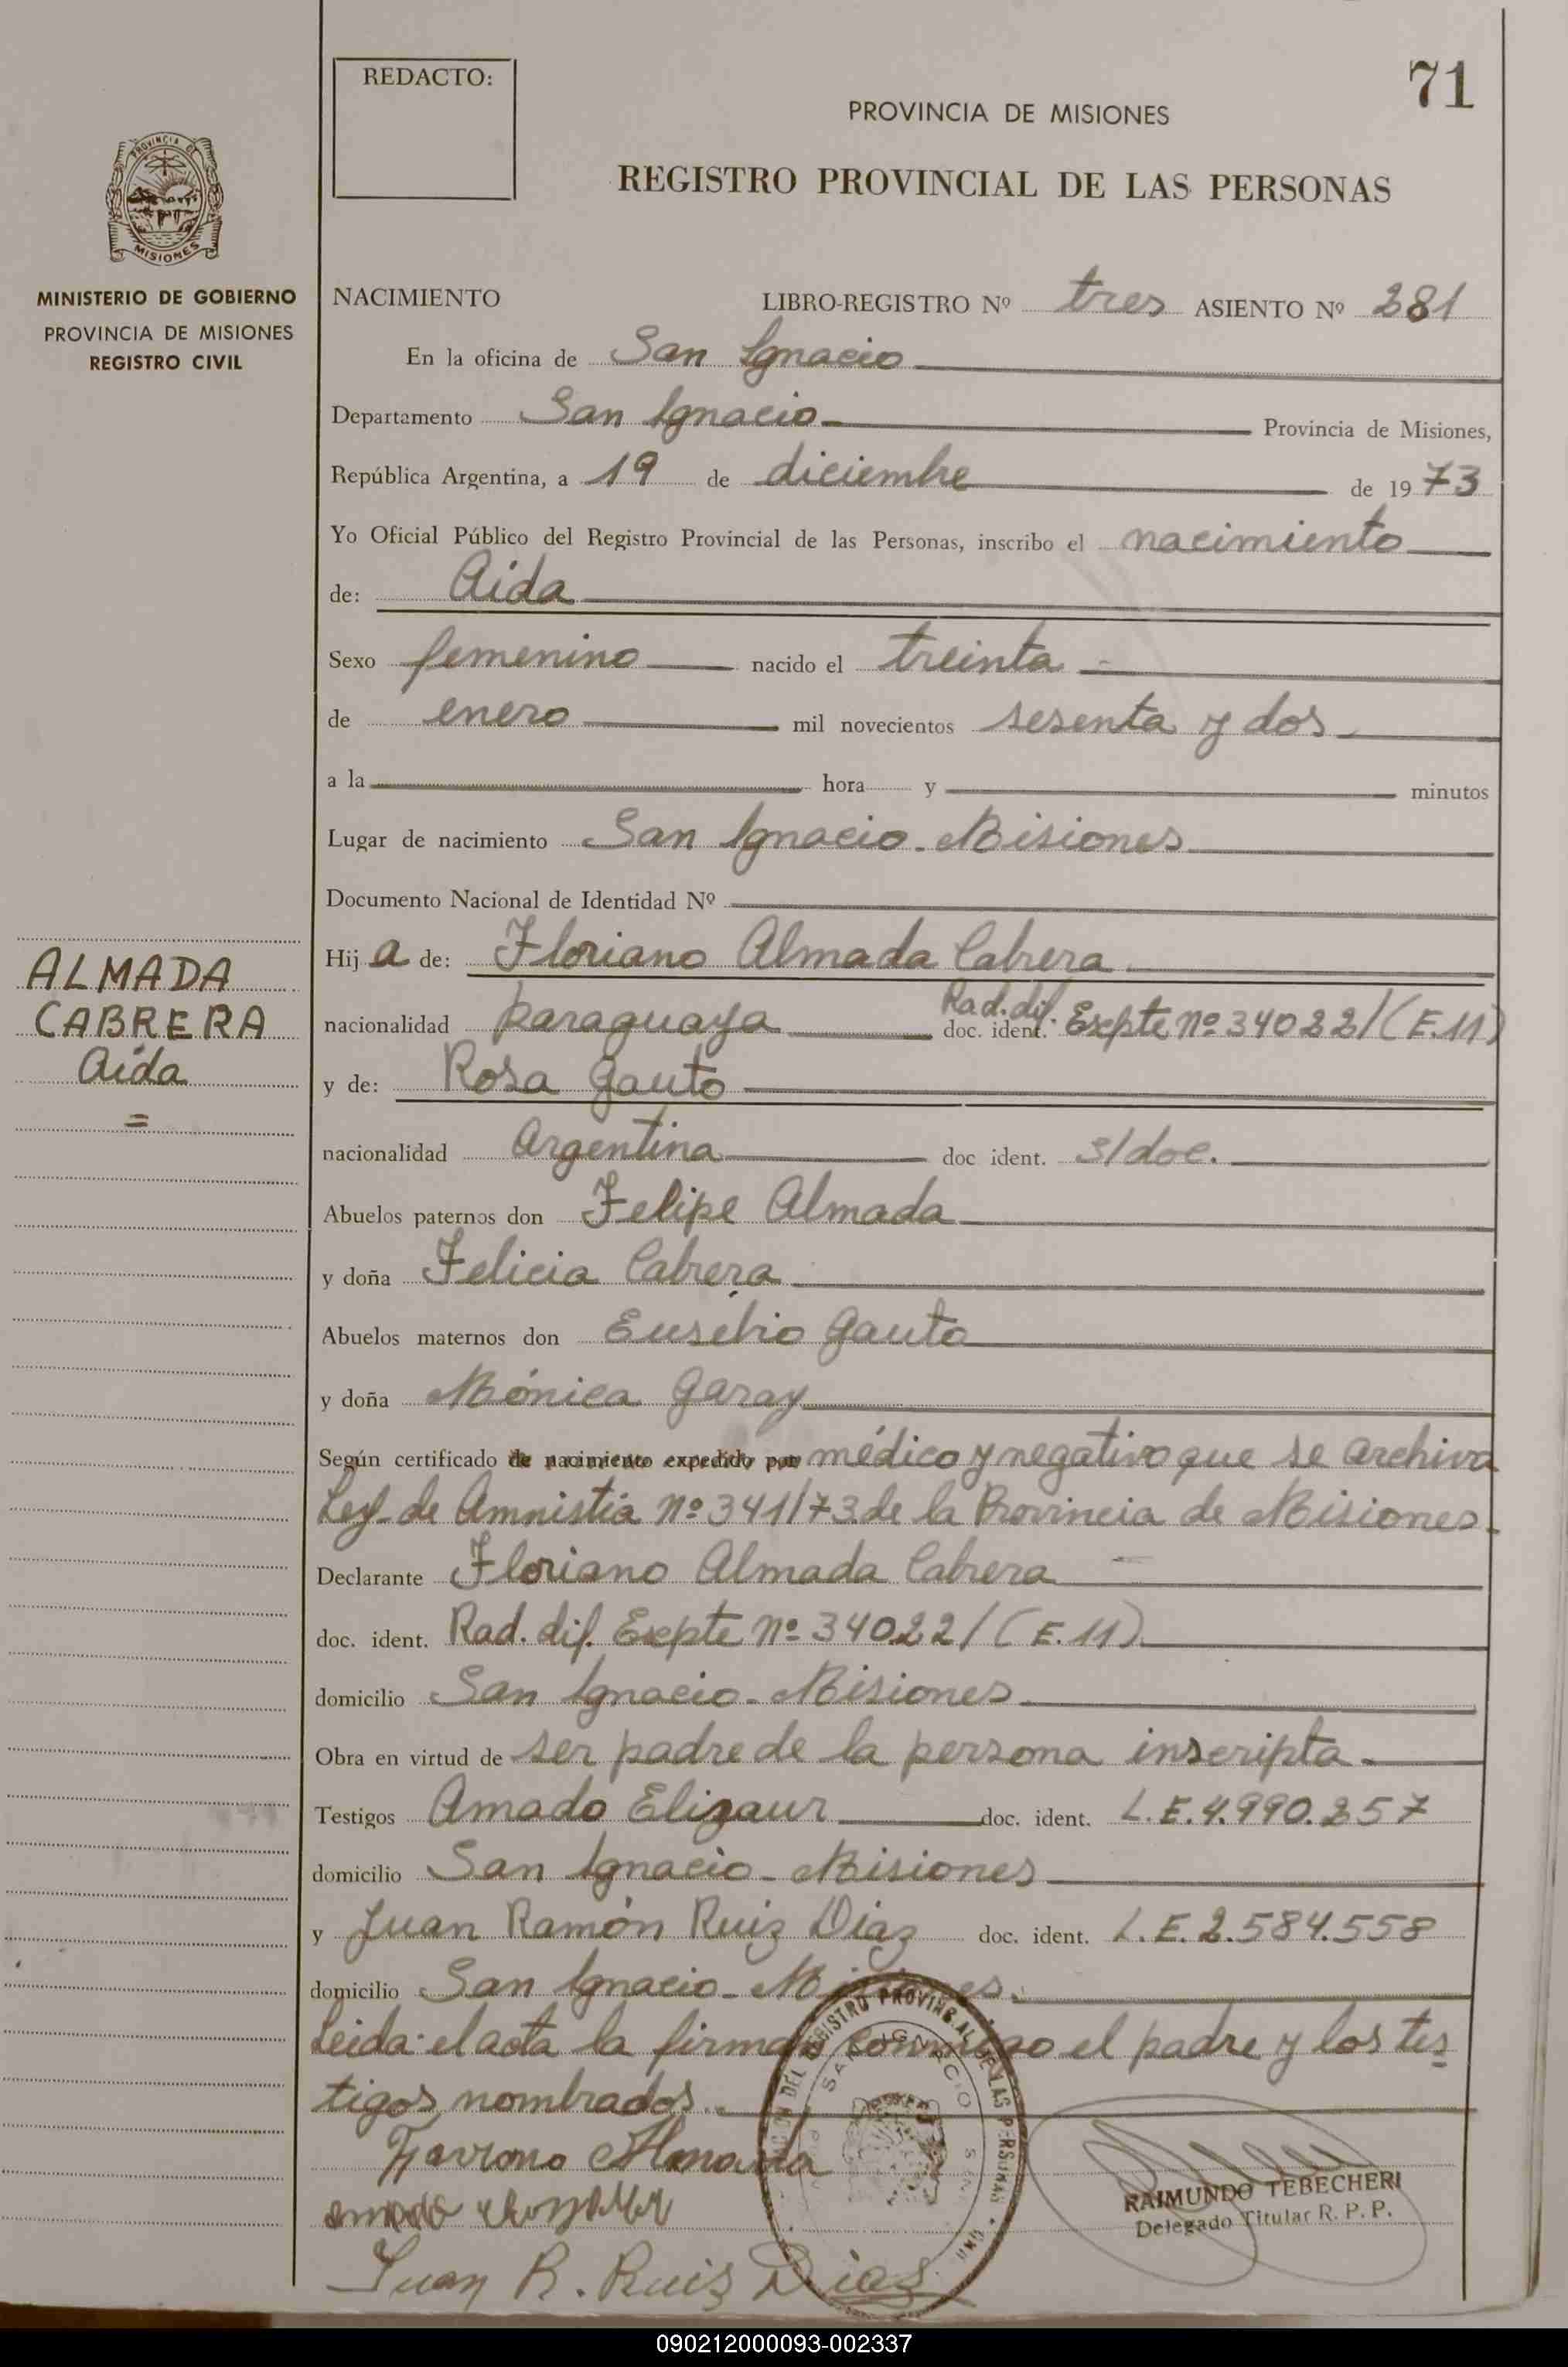 REDACTO:
71
PROVINCIA DE MISIONES
REGISTRO PROVINCIAL DE LAS PERSONAS
PROVINCIA DE
MISIONES
MINISTERIO DE GOBIERNO
PROVINCIA DE MISIONES
REGISTRO CIVIL
NACIMIENTO LIBRO-REGISTRO Nº tres ASIENTO Nº 281
En la oficina de San Ignacio
Departamento San Ignacio Provincia de Misiones,
República Argentina, a 19 de diciembre de 1973
Yo Oficial Público del Registro Provincial de las Personas, inscribo el nacimiento
de: Aida
Sexo femenino nacido el treinta
de enero mil novecientos sesenta y dos
a la hora y minutos
Lugar de nacimiento San Ignacio - Misiones
Documento Nacional de Identidad Nº
ALMADA
CABRERA
Aída
=
Hij a de: Floriano Almada Cabrera
nacionalidad paraguaya doc. ident. Rad. dif. Expte nº 34022/(E.11)
y de: Rosa Gauto
nacionalidad Argentina doc ident. s/doc.
Abuelos paternos don Felipe Almada
y doña Felicia Cabrera
Abuelos maternos don Eusebio Gauto
y doña Mónica Garay
Según certificado de nacimiento expedido por médico y negativo que se archiva
Ley de Amnistía nº 341/73 de la Provincia de Misiones.
Declarante Floriano Almada Cabrera
doc. ident. Rad. dif. Expte nº 34022/(E.11)
domicilio San Ignacio - Misiones
Obra en virtud de ser padre de la persona inscripta.
Testigos Amado Elizaur doc. ident. L.E. 4.990.257
domicilio San Ignacio - Misiones
y Juan Ramón Ruiz Diaz doc. ident. L.E. 2.584.558
domicilio San Ignacio - Misiones.
Leida el acta la firman conmigo el padre y los tes
tigos nombrados.
Almada
RAIMUNDO TEBECHERI
Delegado Titular R. P. P.
Juan R. Ruis Dias
DEL REGISTRO PROVINCIAL DE LAS PERSONAS
SAN IGNACIO
090212000093-002337